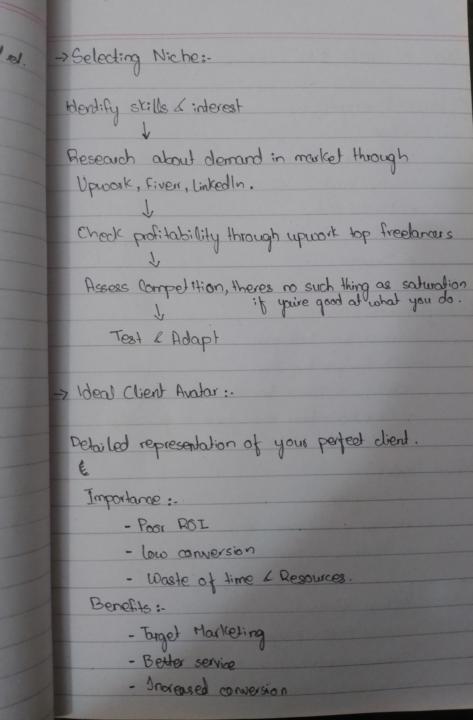 → Selecting Niche:-
Identify skills & interest
↓
Research about demand in market through
Upwork, Fiverr, LinkedIn.
↓
Check profitability through upwork top freelancers
↓
Assess Competition, theres no such thing as saturation
if you're good at what you do.
↓
Test & Adapt
→ Ideal Client Avatar:-
Detailed representation of your perfect client.
Importance:-
- Poor ROI
- Low conversion
- Waste of time & Resources.
Benefits:-
- Target Marketing
- Better service
- Increased conversion